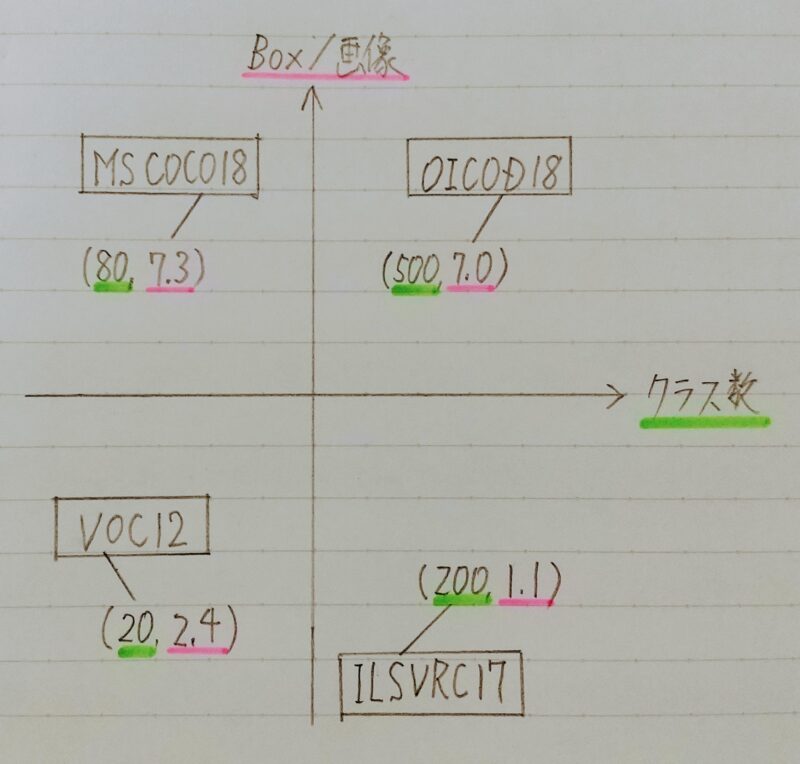 Box/画像
MS COCO18
OICOD18
(80, 7.3)
(500, 7.0)
クラス数
VOC12
(200, 1.1)
(20, 2.4)
ILSVRC17